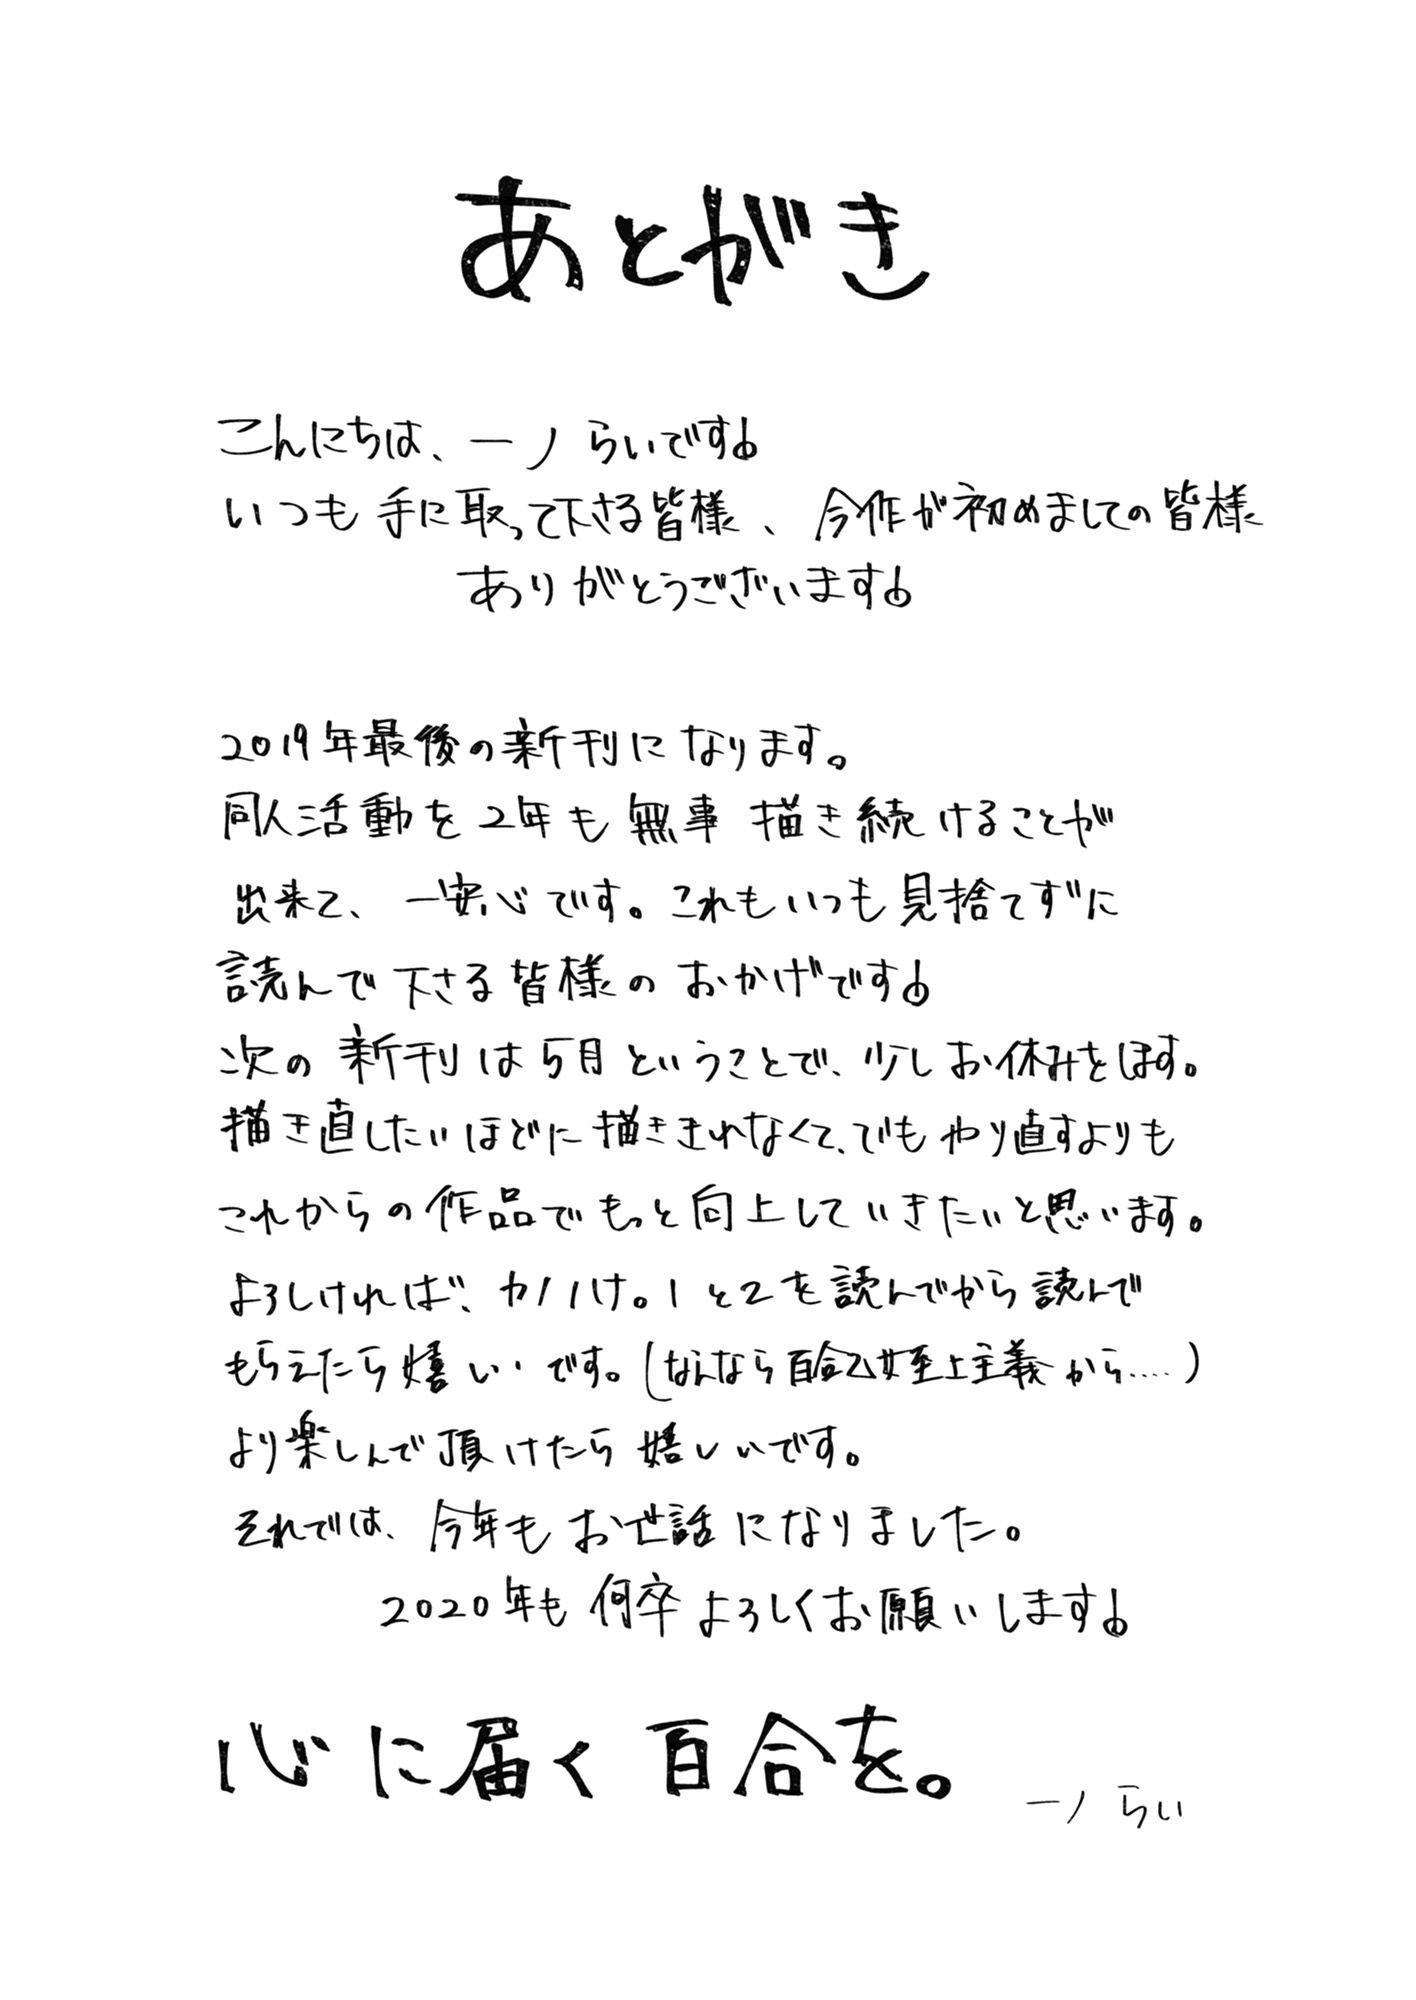 あとがき
こんにちは、一ノらいです!
いつも手に取って下さる皆様、今作が初めましての皆様
ありがとうございます!
2019年最後の新刊になります。
同人活動を2年も無事描き続けることが
出来て、一安心です。これもいつも見捨てずに
読んで下さる皆様のおかげです!
次の新刊は5月ということで、少しお休みをします。
描き直したいほどに描ききれなくて、でもやり直すよりも
これからの作品でもっと向上していきたいと思います。
よろしければ、カノハケ。1と2を読んでから読んで
もらえたら嬉しいです。(なんなら百合乙女至上主義から……)
より楽しんで頂けたら嬉しいです。
それでは、今年もお世話になりました。
2020年も何卒よろしくお願いします!
心に届く百合を。
一ノらい